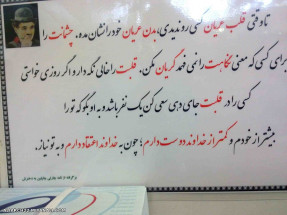 تا وقتی قلب عریان کسی را ندیدی، بدن عریان خود را نشان مده. چشمانت را
برای کسی که معنی نگاهت را نمی فهمد گریان مکن. قلبت را خالی نگه دار و اگر روزی خواستی
کسی را در قلبت جای دهی سعی کن یک نفر باشد و به او بگو که تو را
بیشتر از خودم و کمتر از خداوند دوست دارم؛ چون به خداوند اعتقاد دارم و به تو نیاز.
برگرفته از نامه چارلی چاپلین به دخترش